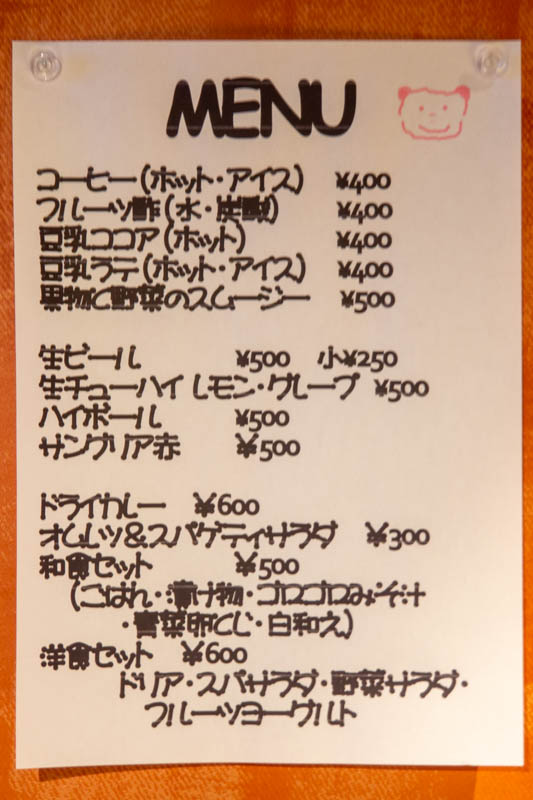 MENU
コーヒー(ホット・アイス) ¥400
フルーツ酢(水・炭酸) ¥400
豆乳ココア(ホット) ¥400
豆乳ラテ(ホット・アイス) ¥400
果物と野菜のスムージー ¥500
生ビール ¥500 小¥250
生チューハイ レモン・グレープ ¥500
ハイボール ¥500
サングリア赤 ¥500
ドライカレー ¥600
オムレツ&スパゲティサラダ ¥300
和食セット ¥500
(ごはん・漬け物・ゴロゴロみそ汁
・青菜卵とじ・白和え)
洋食セット ¥600
ドリア・スパサラダ・野菜サラダ・
フルーツヨーグルト